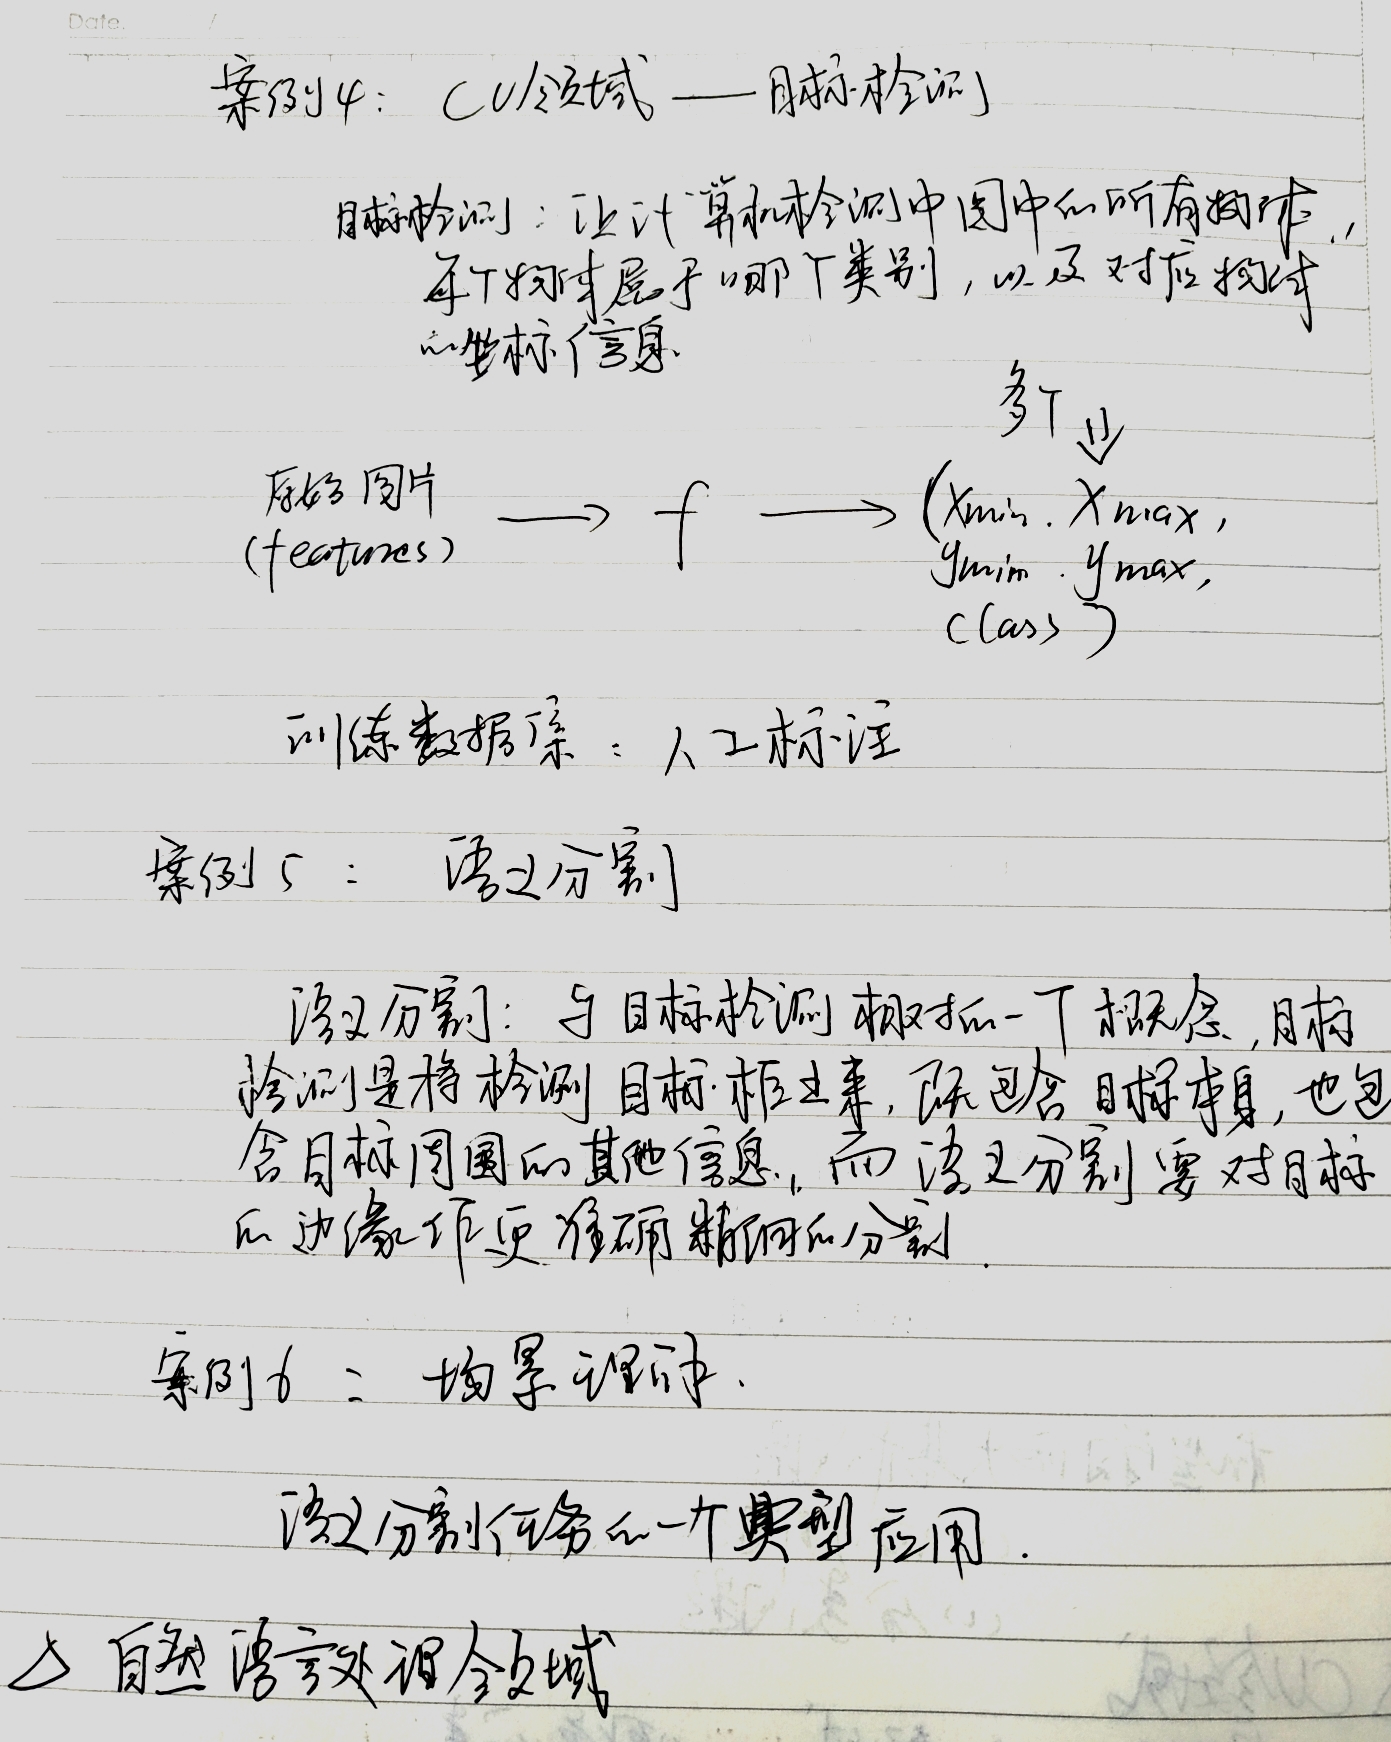 Date. /
案例4： CV领域 —— 目标检测
目标检测：让计算机检测中图中的所有物体，
每个物体属于哪个类别，以及对应物体
的坐标信息.
多个 ⇓
原始图片
(features) → f → (Xmin. Xmax,
ymin. ymax,
class)
训练数据集：人工标注
案例5： 语义分割
语义分割：与目标检测相对的一个概念，目标
检测是将检测目标框出来，既包含目标本身，也包
含目标周围的其他信息，而语义分割要对目标
的边缘作更准确精细的分割.
案例6： 场景理解.
语义分割任务的一个典型应用.
△ 自然语言处理领域